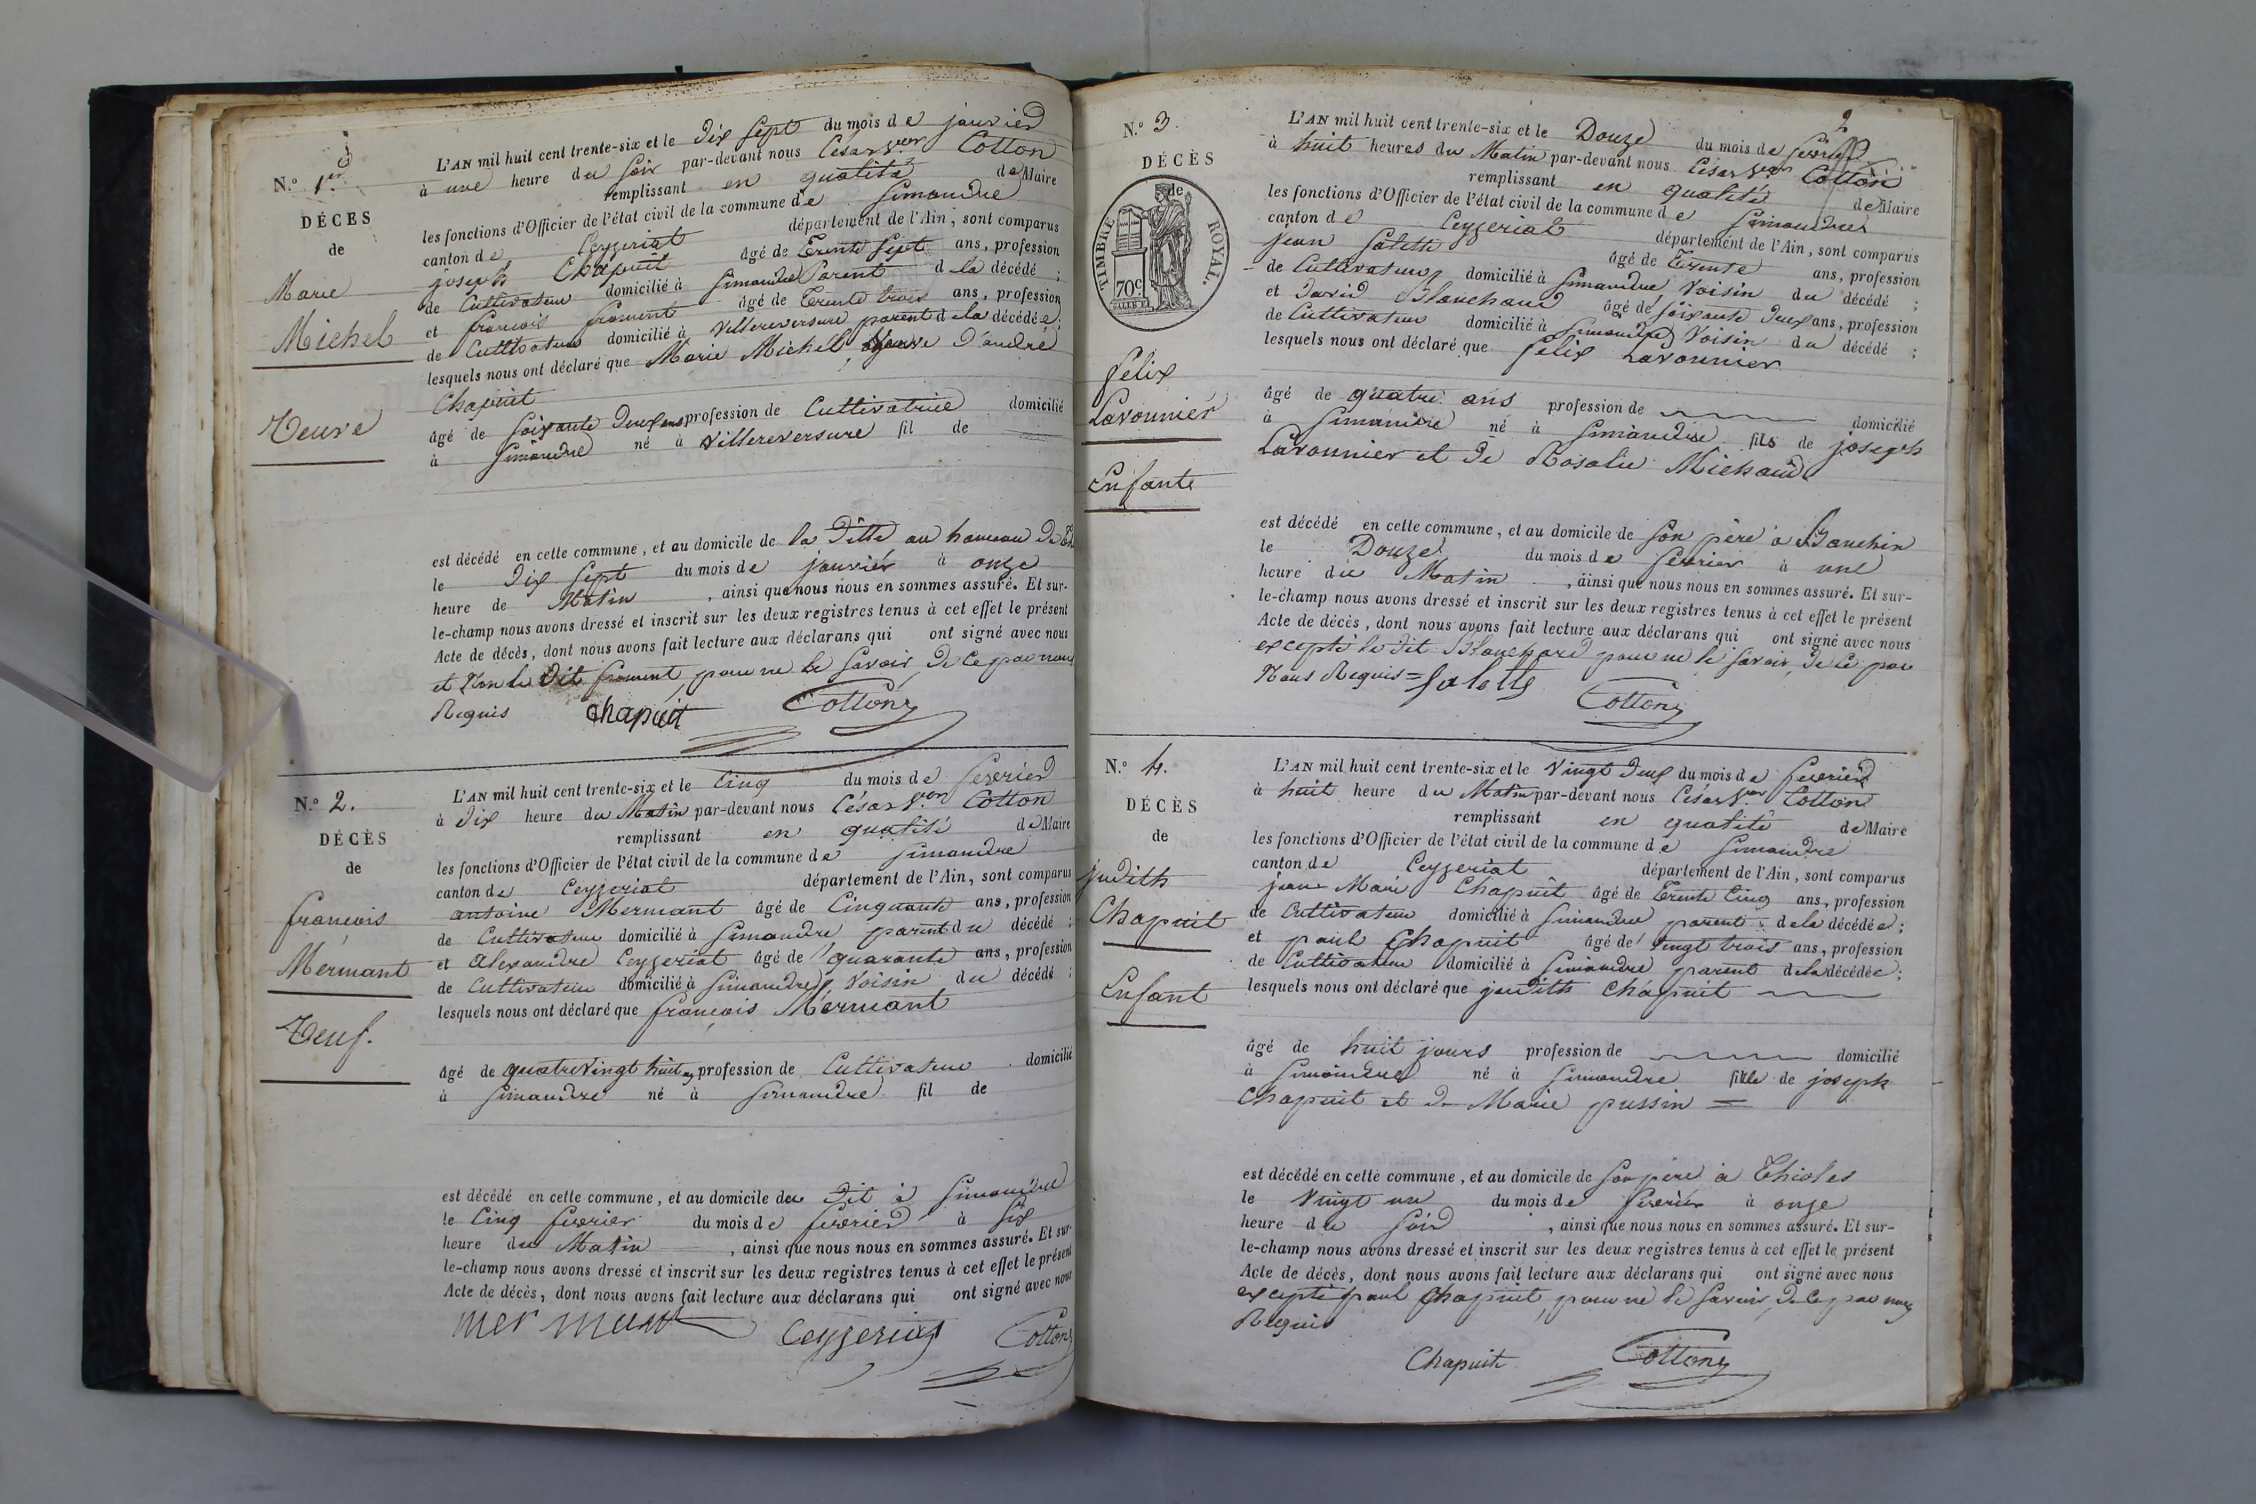 N.º 1.er
DÉCES
de
Marie
Michel
Veuve
L'AN mil huit cent trente-six et le dix sept du mois de janvier
à une heure du soir par-devant nous César V.or Cotton
remplissant en qualité de Maire
les fonctions d'Officier de l'état civil de la commune de Simandre
canton de Ceyzeriat département de l'Ain, sont comparus
joseph Chapuit âgé de trente sept ans, profession
de Cultivateur domicilié à Simandre parent d la décédé ;
et françois froment âgé de trente trois ans, profession
de Cultivateur domicilié à Villereversure parent d ela décédée ;
lesquels nous ont déclaré que Marie Michel, veuve d'andré
Chapuit
âgé de soixante deux ans profession de Cultivatrice domicilié
à Simandre né à Villereversure fil de
est décédé en cette commune, et au domicile de la ditte au hameau de
le dix sept du mois de janvier à onze
heure de Matin , ainsi que nous nous en sommes assuré. Et sur-
le-champ nous avons dressé et inscrit sur les deux registres tenus à cet effet le présent
Acte de décès, dont nous avons fait lecture aux déclarans qui ont signé avec nous
et non le dit froment, pour ne le savoir, de ce par nous
Requis Chapuit Cotton
N.º 2.
DÉCÈS
de
françois
Mermant
Veuf.
L'AN mil huit cent trente-six et le Cinq du mois de fevrier
à dix heure du Matin par-devant nous César V.or Cotton
remplissant en qualité de Maire
les fonctions d'Officier de l'état civil de la commune de Simandre
canton de Ceyzeriat département de l'Ain, sont comparus
antoine Mermant âgé de Cinquante ans, profession
de Cultivateur domicilié à Simandre parent du décédé ;
et alexandre Ceyzeriat âgé de quarante ans, profession
de Cultivateur domicilié à Simandre, Voisin du décédé ;
lesquels nous ont déclaré que françois Mermant
âgé de quatre Vingt huit ans profession de Cultivateur domicilié
à Simandre né à Simandre fil de
est décédé en cette commune, et au domicile du dit à Simandre
le Cinq fevrier du mois de fevrier à six
heure du Matin , ainsi que nous nous en sommes assuré. Et sur-
le-champ nous avons dressé et inscrit sur les deux registres tenus à cet effet le présent
Acte de décès, dont nous avons fait lecture aux déclarans qui ont signé avec nous
mermant Ceyzeriat Cotton
2
N.º 3.
DÉCÈS
de
TIMBRE ROYAL.
70c
félix
Lavounier
Enfante
L'AN mil huit cent trente-six et le Douze du mois de fevrier
à huit heures du Matin par-devant nous César V.or Cotton
remplissant en qualité de Maire
les fonctions d'Officier de l'état civil de la commune de Simandre
canton de Ceyzeriat département de l'Ain, sont comparus
jean Salette âgé de trente ans, profession
de Cultivateur, domicilié à Simandre Voisin du décédé ;
et david Blanchard âgé de soixante deux ans, profession
de Cultivateur domicilié à Simandre Voisin du décédé ;
lesquels nous ont déclaré que félix Lavounier
âgé de quatre ans profession de domicilié
à Simandre né à Simandre fils de joseph
Lavounier et de Rosalie Michaud
est décédé en cette commune, et au domicile de son père à Banchin
le Douze du mois de fevrier à une
heure du Matin , ainsi que nous nous en sommes assuré. Et sur-
le-champ nous avons dressé et inscrit sur les deux registres tenus à cet effet le présent
Acte de décès, dont nous avons fait lecture aux déclarans qui ont signé avec nous
excepté le dit Blanchard pour ne le savoir, de ce par
Nous Requis = Salette Cotton
N.º 4.
DÉCÈS
de
judith
Chapuit
Enfant
L'AN mil huit cent trente-six et le Vingt deux du mois de fevrier
à huit heure du Matin par-devant nous César V.or Cotton
remplissant en qualité de Maire
les fonctions d'Officier de l'état civil de la commune de Simandre
canton de Ceyzeriat département de l'Ain, sont comparus
jean Marie Chapuit âgé de trente Cinq ans, profession
de Cultivateur domicilié à Simandre parent de la décédée ;
et paul Chapuit âgé de vingt trois ans, profession
de Cultivateur domicilié à Simandre parent dela décédée ;
lesquels nous ont déclaré que judith Chapuit
âgé de huit jours profession de domicilié
à Simandre né à Simandre fille de joseph
Chapuit et de Marie pussin =
est décédé en cette commune, et au domicile de son père à Thioles
le Vingt un du mois de fevrier à onze
heure du soir , ainsi que nous nous en sommes assuré. Et sur-
le-champ nous avons dressé et inscrit sur les deux registres tenus à cet effet le présent
Acte de décès, dont nous avons fait lecture aux déclarans qui ont signé avec nous
excepté paul Chapuit, pour ne le savoir, de ce par nous
Requis
Chapuit Cotton